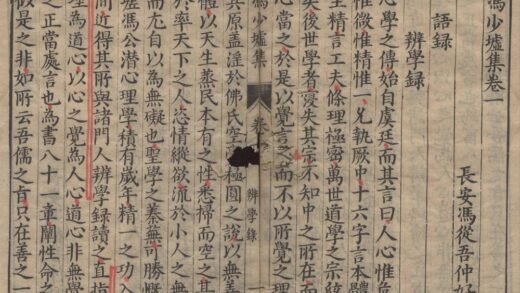 馮少墟集卷一
語錄
長安馮從吾仲好
辨學錄
心學之傳始自虞廷而其言曰人心惟危
惟微惟精惟一允執厥中十六字言本體
生精言工夫條理極密萬世道學之宗統
矣後世學者失其宗不知中之所在而
心當之於是以覺言之而不以所覺之理
馮少墟集
卷
辨學錄
一
其原蓋淫於佛氏空極圓之說以無善
體以天生蒸民本有之性悉掃而空之其
於率天下之人恣情縱欲流於小人之無
而尤自以為無礙也聖學之蓁蕪可勝慨
墟馮公潛心理學積有歲年精一之功入
間近得其所與諸門人辨學錄讀之直指
理為道心以心之覺為人心道心非無覺
之正當處言也為書八十一章闡性命之
似是之非如所云吾儒之旨只在善之一